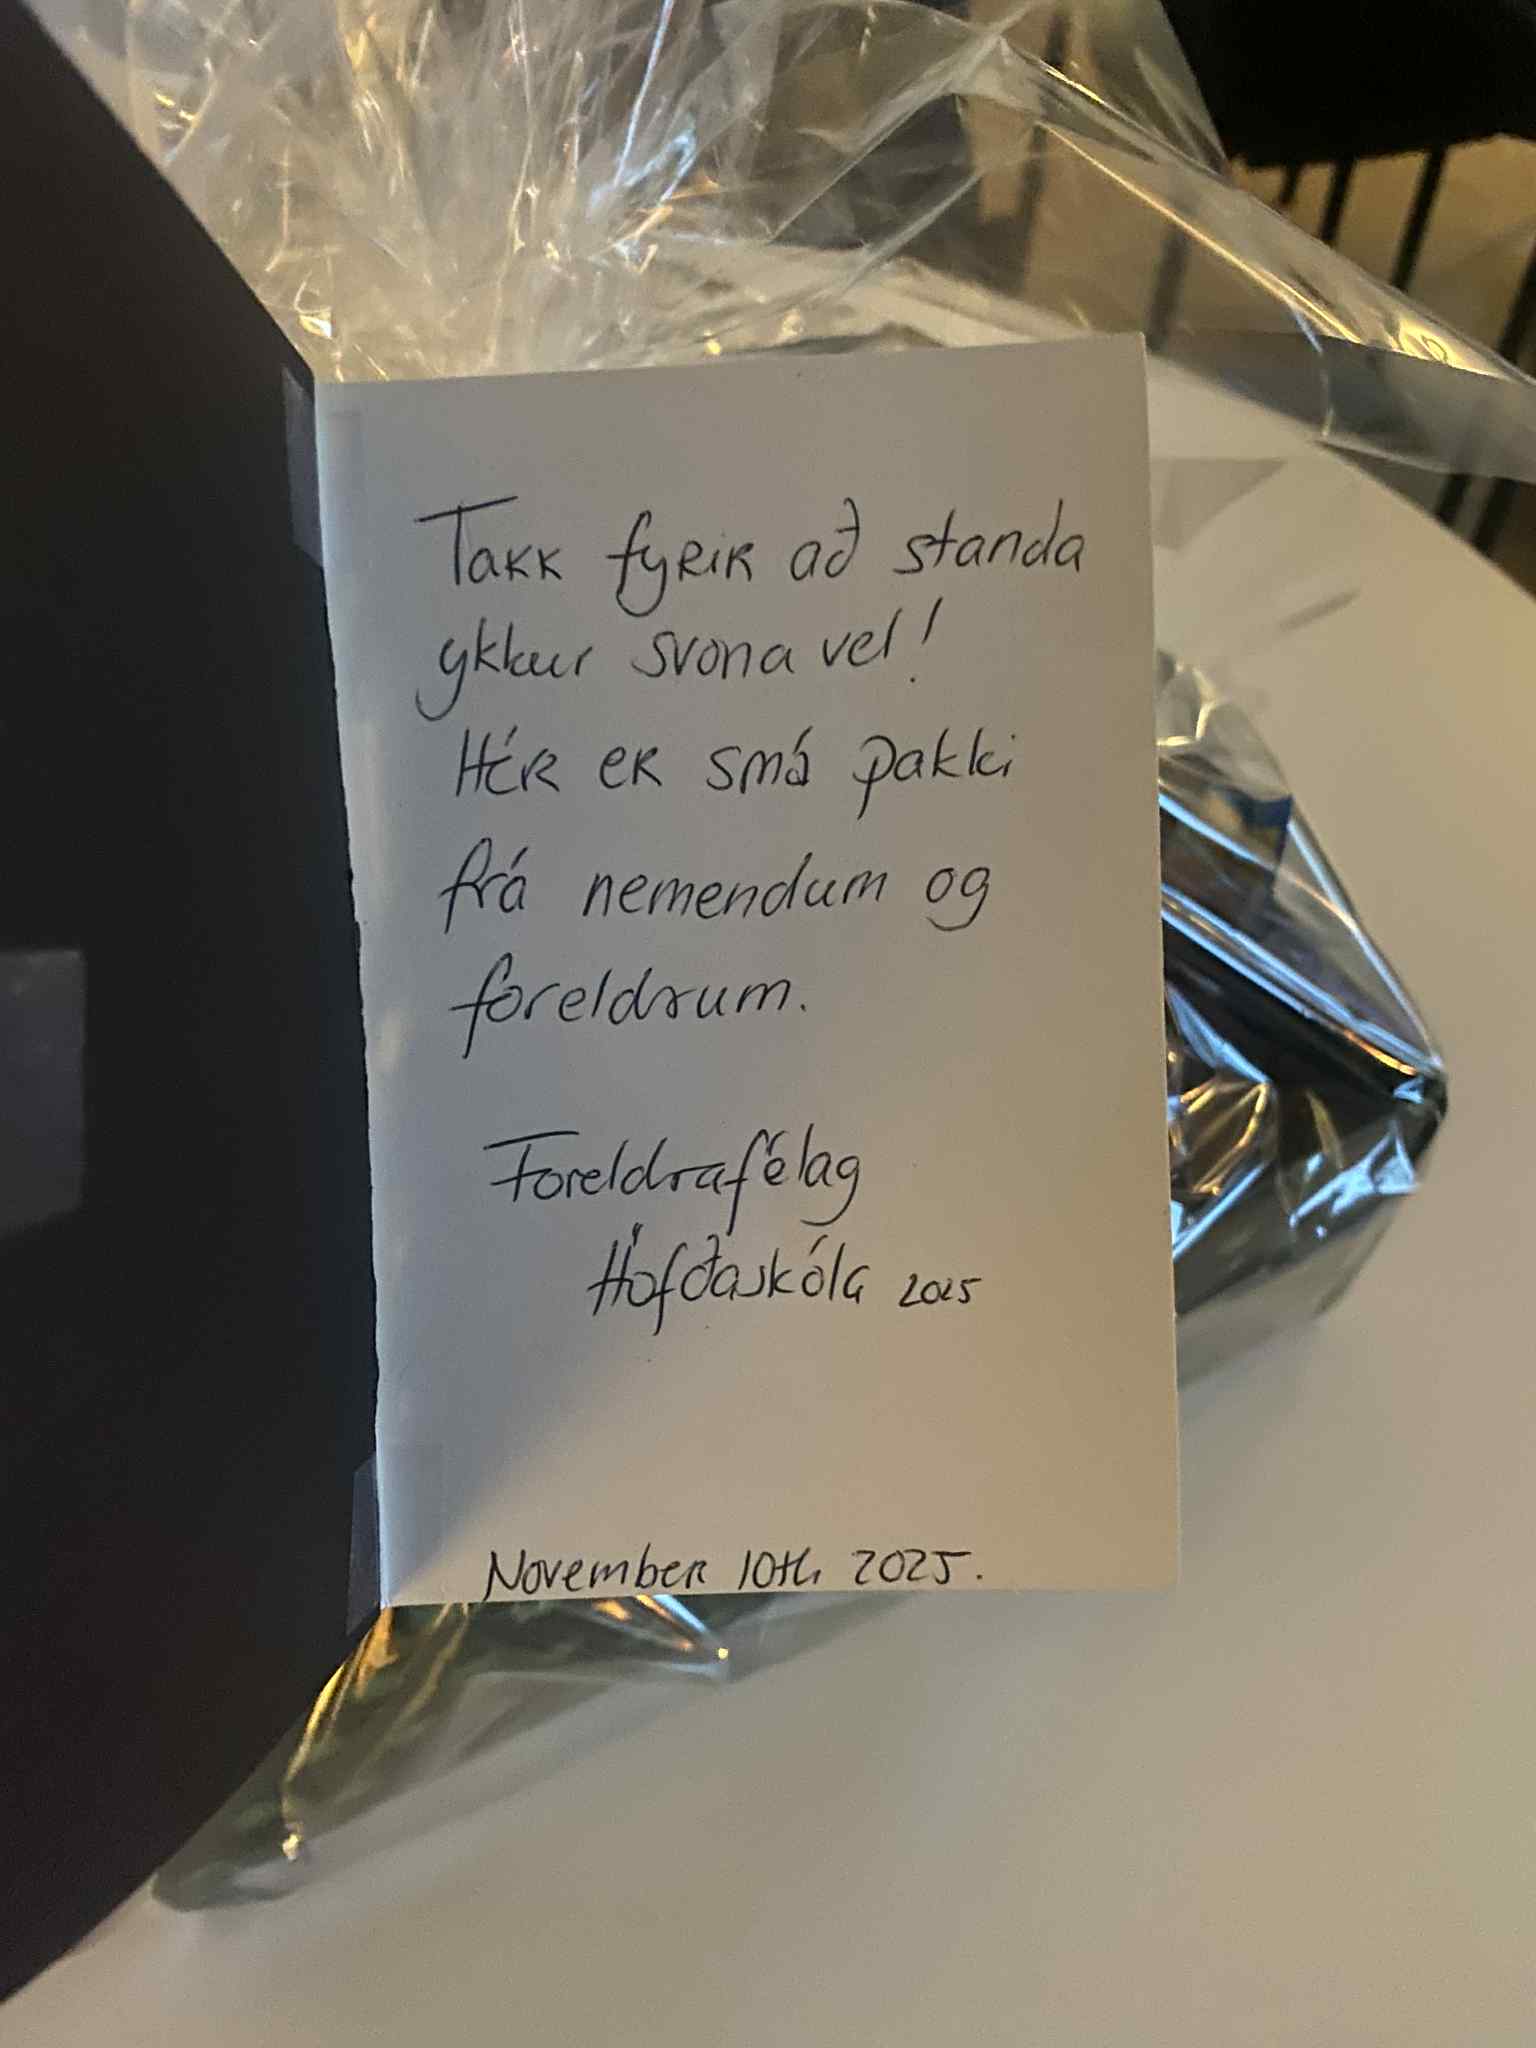 Takk fyrir að standa
ykkur svona vel!
Hér er smá pakki
frá nemendum og
foreldrum.
Foreldrafélag
Höfðaskóla 2025
November 10th 2025.